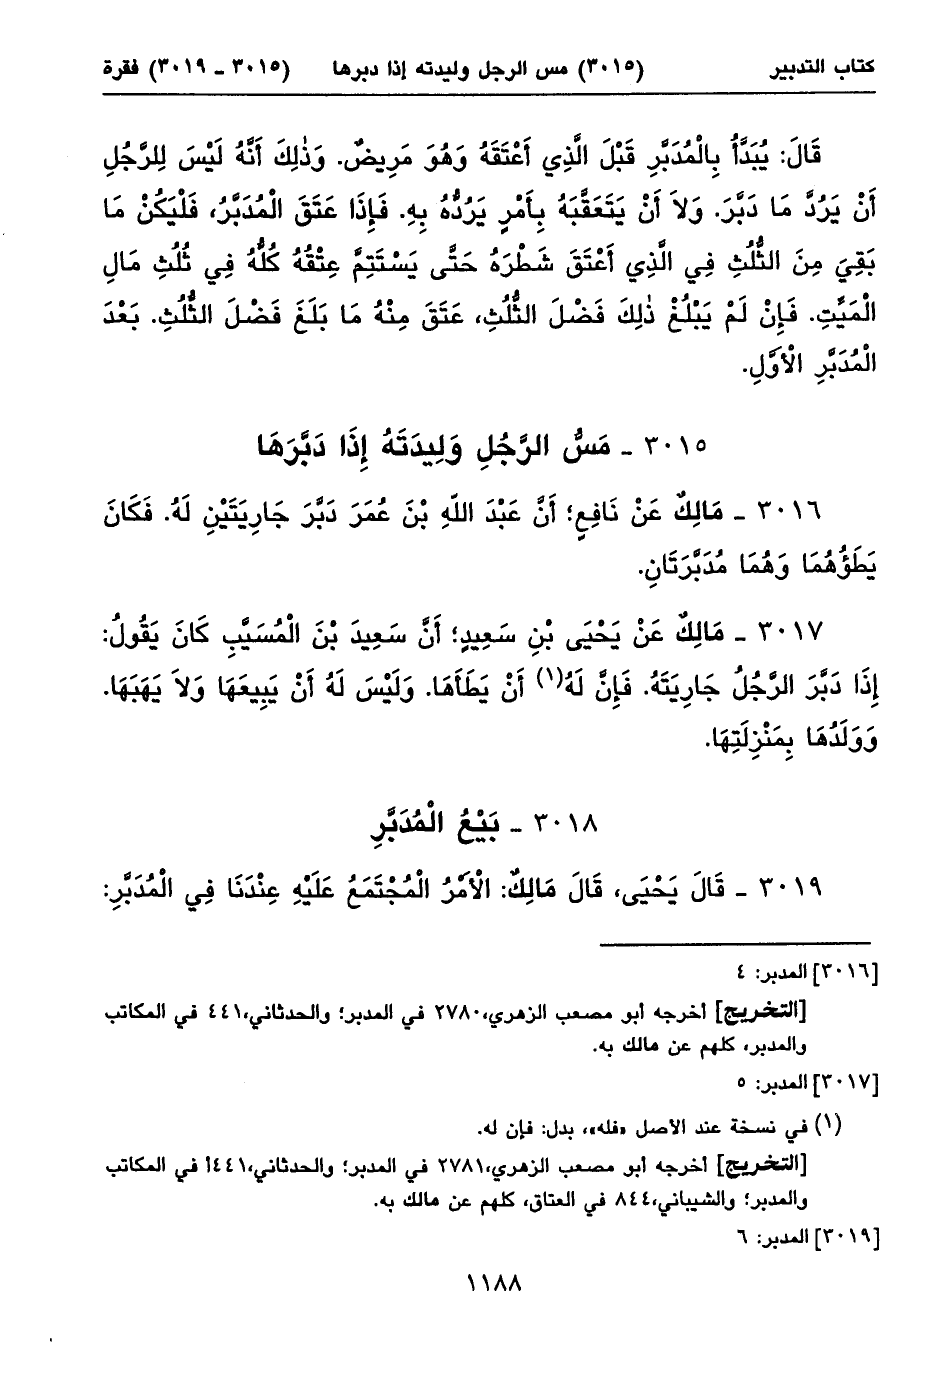 كتاب التدبير (٣٠١٥) مس الرجل وليدته إذا دبرها (٣٠١٥ ـ ٣٠١٩) فقرة
قَالَ: يُبَدَّأُ بِالْمُدَبَّرِ قَبْلَ الَّذِي أَعْتَقَهُ وَهُوَ مَرِيضٌ. وَذٰلِكَ أَنَّهُ لَيْسَ لِلرَّجُلِ
أَنْ يَرُدَّ مَا دَبَّرَ. وَلاَ أَنْ يَتَعَقَّبَهُ بِأَمْرٍ يَرُدُّهُ بِهِ. فَإِذَا عَتَقَ الْمُدَبَّرُ، فَلْيَكُنْ مَا
بَقِيَ مِنَ الثُّلُثِ فِي الَّذِي أَعْتَقَ شَطْرَهُ حَتَّى يَسْتَتِمَّ عِتْقُهُ كُلُّهُ فِي ثُلُثِ مَالِ
الْمَيِّتِ. فَإِنْ لَمْ يَبْلُغْ ذٰلِكَ فَضْلَ الثُّلُثِ، عَتَقَ مِنْهُ مَا بَلَغَ فَضْلَ الثُّلُثِ. بَعْدَ
الْمُدَبَّرِ الْأَوَّلِ.
٣٠١٥ ـ مَسُّ الرَّجُلِ وَلِيدَتَهُ إِذَا دَبَّرَهَا
٣٠١٦ ـ مَالِكٌ عَنْ نَافِعٍ؛ أَنَّ عَبْدَ اللّهِ بْنَ عُمَرَ دَبَّرَ جَارِيَتَيْنِ لَهُ. فَكَانَ
يَطَؤُهُمَا وَهُمَا مُدَبَّرَتَانِ.
٣٠١٧ ـ مَالِكٌ عَنْ يَحْيَى بْنِ سَعِيدٍ؛ أَنَّ سَعِيدَ بْنَ الْمُسَيَّبِ كَانَ يَقُولُ:
إِذَا دَبَّرَ الرَّجُلُ جَارِيَتَهُ. فَإِنَّ لَهُ(١) أَنْ يَطَأَهَا. وَلَيْسَ لَهُ أَنْ يَبِيعَهَا وَلاَ يَهَبَهَا.
وَوَلَدُهَا بِمَنْزِلَتِهَا.
٣٠١٨ ـ بَيْعُ الْمُدَبَّرِ
٣٠١٩ ـ قَالَ يَحْيَى، قَالَ مَالِكٌ: الْأَمْرُ الْمُجْتَمَعُ عَلَيْهِ عِنْدَنَا فِي الْمُدَبَّرِ:
[٣٠١٦] المدبر: ٤
[التخريج] أخرجه أبو مصعب الزهري،٢٧٨٠ في المدبر؛ والحدثاني،٤٤١ في المكاتب
والمدبر، كلهم عن مالك به.
[٣٠١٧] المدبر: ٥
(١) في نسخة عند الأصل «فله»، بدل: فإن له.
[التخريج] أخرجه أبو مصعب الزهري،٢٧٨١ في المدبر؛ والحدثاني،٤٤١أ في المكاتب
والمدبر؛ والشيباني،٨٤٤ في العتاق، كلهم عن مالك به.
[٣٠١٩] المدبر: ٦
١١٨٨